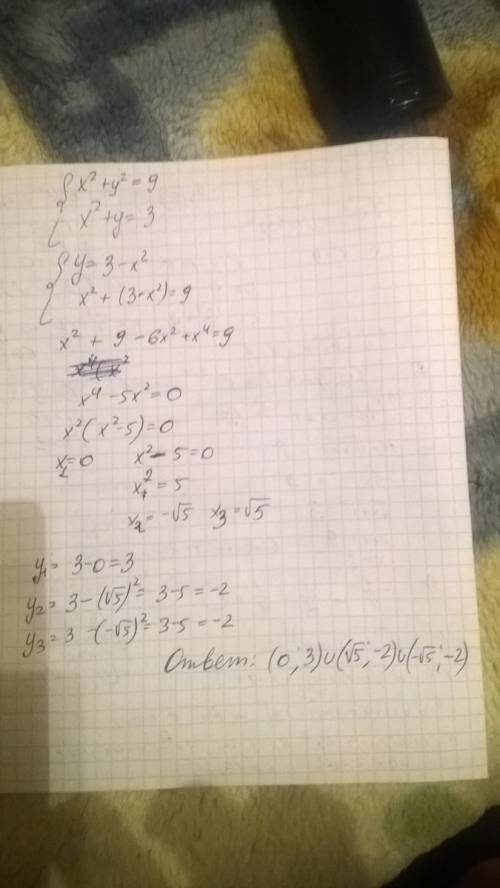 { x² + y² = 9
x² + y = 3
{ y = 3 - x²
x² + (3 - x²) = 9
x² + 9 - 6x² + x⁴ = 9
x⁴ - 5x² = 0
x²(x² - 5) = 0
x₁ = 0 x² - 5 = 0
x² = 5
x₂ = -√5 x₃ = √5
y₁ = 3 - 0 = 3
y₂ = 3 - (√5)² = 3 - 5 = -2
y₃ = 3 - (-√5)² = 3 - 5 = -2
Ответ: (0; 3)∪(√5; -2)∪(-√5; -2)